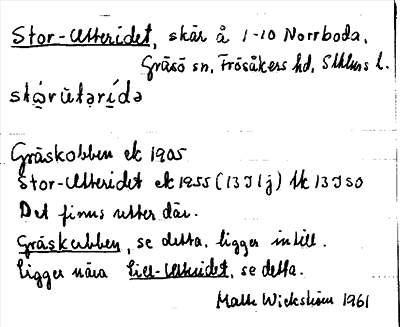 Stor-Utteridet, skär å 1-10 Norrboda,
Gräsö sn, Frösåkers hd, Sthlms l.
stọ́rùtərídə
Gräskobben ek 1905
Stor-Utteridet ek 1955 (13 I 1j) tk 13 I SO
Det finns utter där.
Gräskubben, se detta, ligger intill.
Ligger nära Lill-Utteridet, se detta.
Mats Wickström 1961